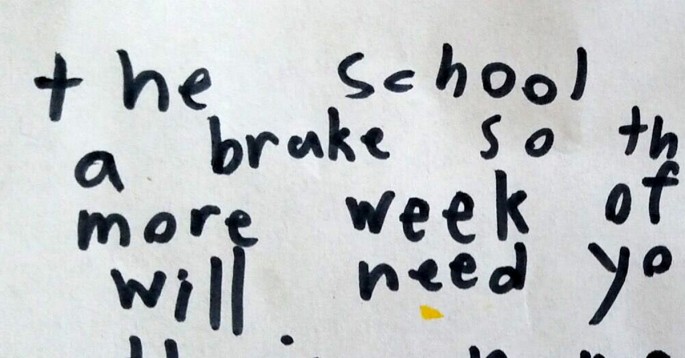 the school
a brake so th
more week of
will need yo